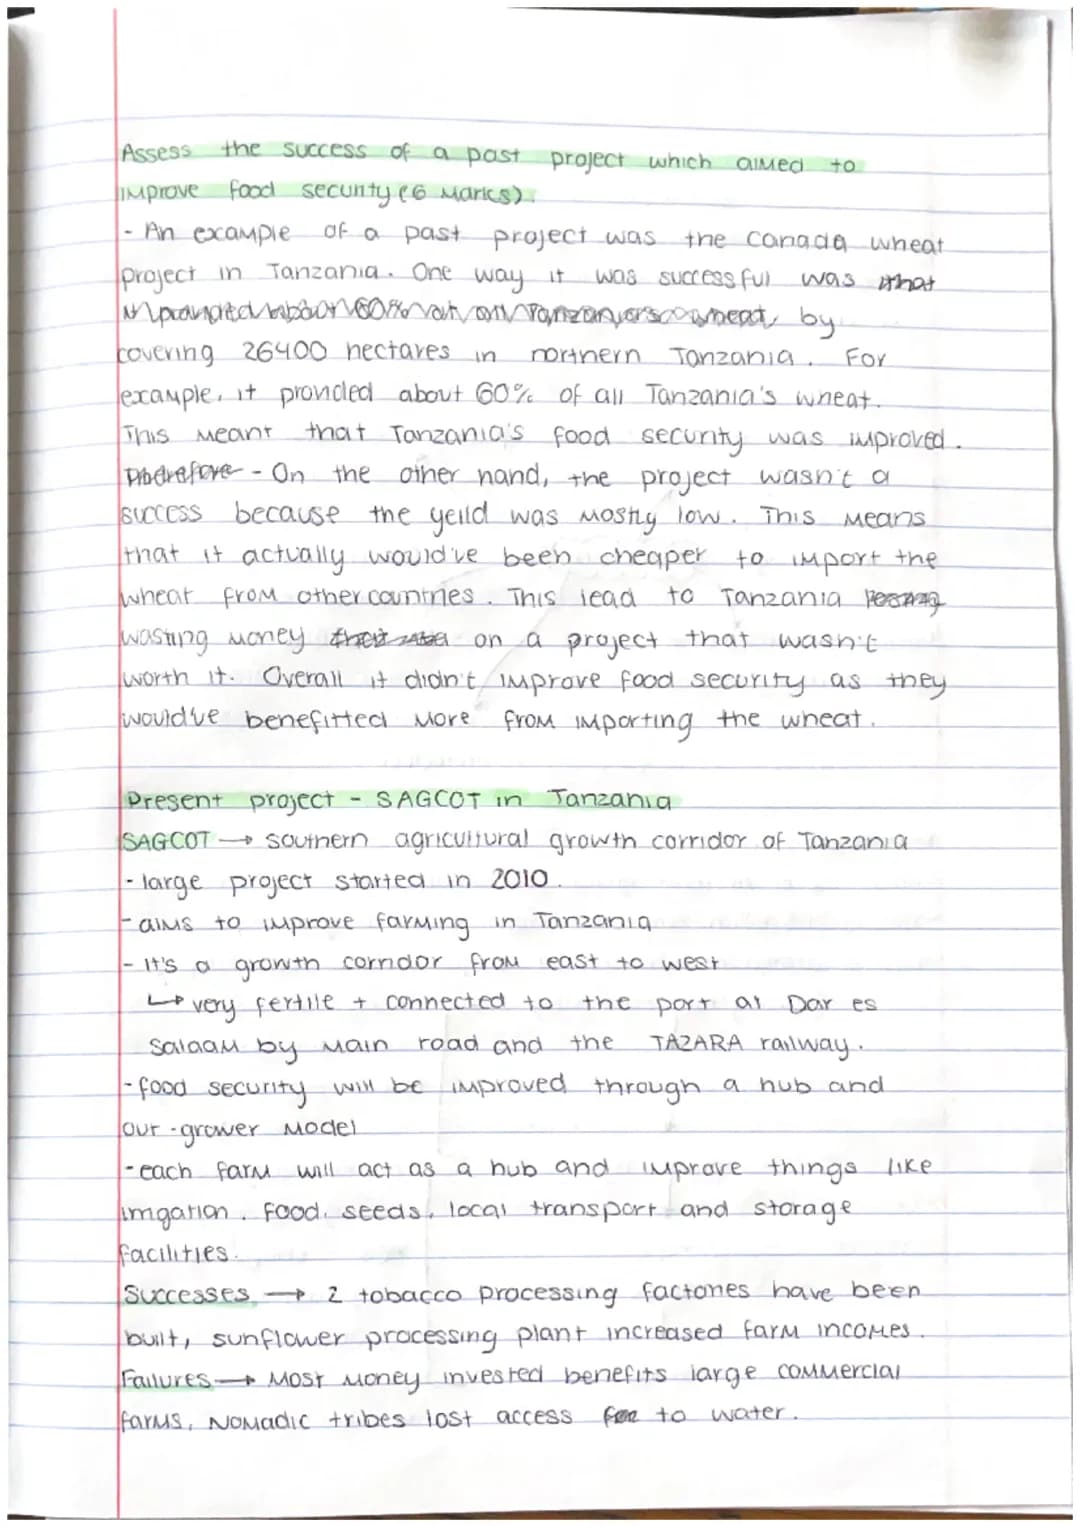 Assess the success of a past project which aimed to
improve food security (6 marks).
- An example of a past project was the Canada wheat
project in Tanzania. One way it was successful was that
by
covering 26400 hectares in northern Tanzania. For
example, it provided about 60% of all Tanzania's wheat.
This meant that Tanzania's food security was improved.
Therefore - On the other hand, the project wasn't a
success because the yeild was mostly low. This means
that it actually would've been cheaper to import the
wheat from other countries. This lead to Tanzania
wasting money on a project that wasn't
worth it. Overall it didn't improve food security as they
would've benefitted more from importing the wheat.
Present project - SAGCOT in Tanzania
SAGCOT → southern agricultural growth corridor of Tanzania
- large project started in 2010.
- aims to improve farming in Tanzania
- It's a growth corridor from east to west
↳ very fertile + connected to the port at Dar es
Salaam by main road and the TAZARA railway.
- food security will be improved through a hub and
out-grower model
- each farm will act as a hub and improve things like
irrigation, food, seeds, local transport and storage
facilities.
Successes → 2 tobacco processing factories have been
built, sunflower processing plant increased farm incomes.
Failures → Most money invested benefits large commercial
farms, Nomadic tribes lost access for to water.